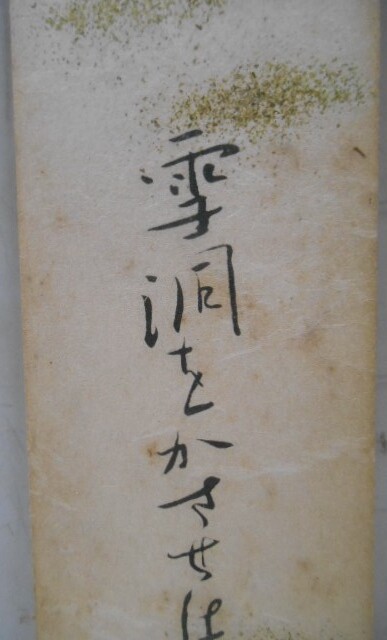 雪洞をかさせは